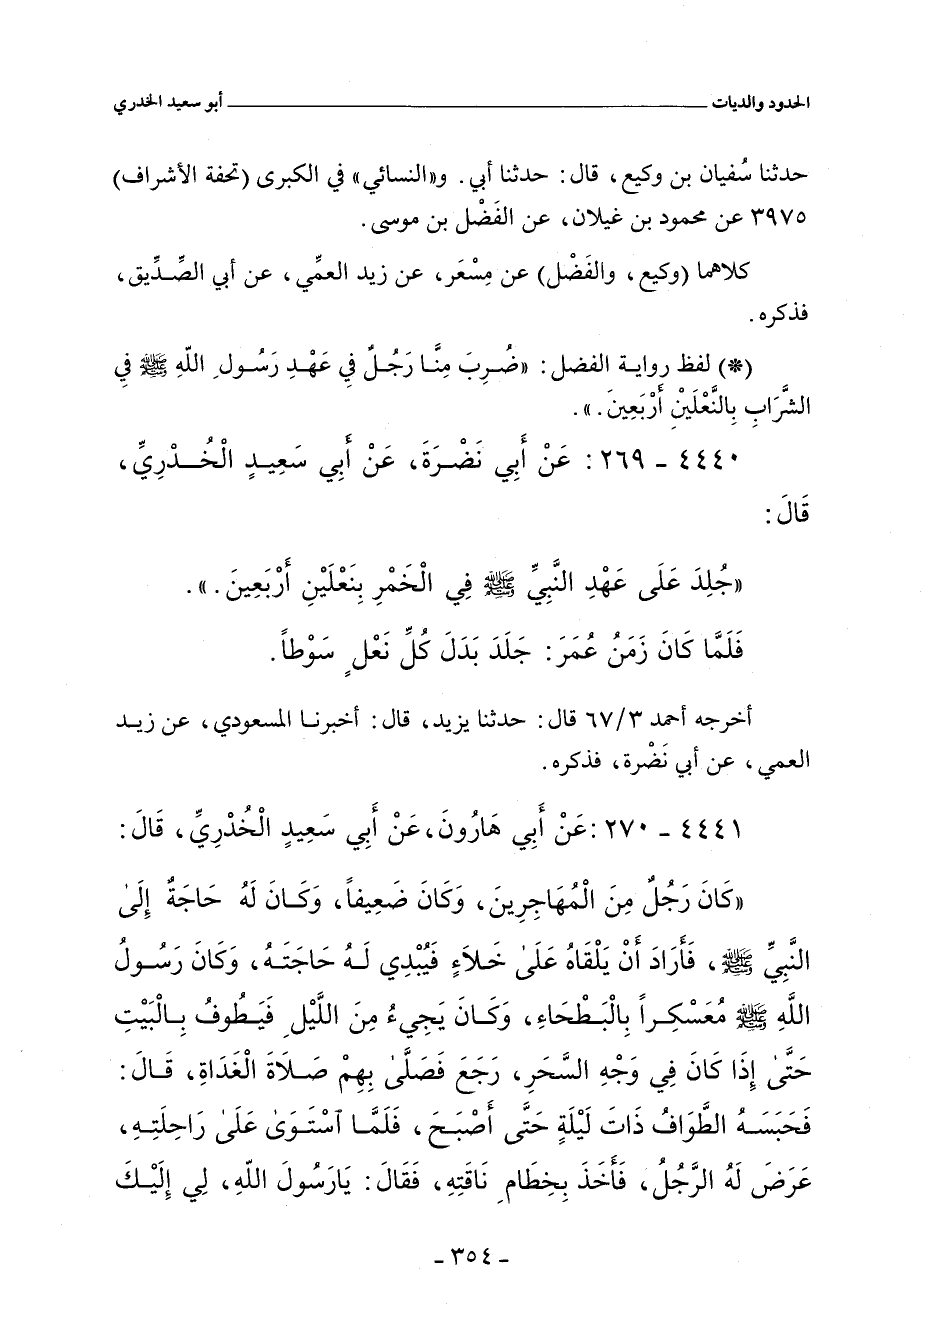 الحدود والديات ــــــــــــــــــــــــــــــــــــــــ أبو سعيد الخدري
حدثنا سُفيان بن وكيع، قال: حدثنا أبي. و«النسائي» في الكبرى (تحفة الأشراف)
٣٩٧٥ عن محمود بن غيلان، عن الفَضْل بن موسى.
كلاهما (وكيع، والفَضْل) عن مِسْعَر، عن زيد العمِّي، عن أبي الصِّدِّيق،
فذكره.
(*) لفظ رواية الفضل: «ضُرِبَ مِنَّا رَجُلٌ في عَهْدِ رَسُولِ اللّهِ ﷺ في
الشَّرَابِ بِالنَّعْلَيْنِ أَرْبَعِينَ.».
٤٤٤٠ - ٢٦٩: عَنْ أَبِي نَضْرَةَ، عَنْ أَبِي سَعِيدٍ الْخُدْرِيِّ،
قَالَ:
«جُلِدَ عَلَى عَهْدِ النَّبِيِّ ﷺ فِي الْخَمْرِ بِنَعْلَيْنِ أَرْبَعِينَ.».
فَلَمَّا كَانَ زَمَنُ عُمَرَ: جَلَدَ بَدَلَ كُلِّ نَعْلٍ سَوْطاً.
أخرجه أحمد ٦٧/٣ قال: حدثنا يزيد، قال: أخبرنا المسعودي، عن زيد
العمي، عن أبي نَضْرة، فذكره.
٤٤٤١ - ٢٧٠: عَنْ أَبِي هَارُونَ، عَنْ أَبِي سَعِيدٍ الْخُدْرِيِّ، قَالَ:
«كَانَ رَجُلٌ مِنَ الْمُهَاجِرِينَ، وَكَانَ ضَعِيفاً، وَكَانَ لَهُ حَاجَةٌ إِلَىٰ
النَّبِيِّ ﷺ، فَأَرَادَ أَنْ يَلْقَاهُ عَلَىٰ خَلَاءٍ فَيُبْدِي لَهُ حَاجَتَهُ، وَكَانَ رَسُولُ
اللَّهِ ﷺ مُعَسْكِراً بِالْبَطْحَاءِ، وَكَانَ يَجِيءُ مِنَ اللَّيْلِ فَيَطُوفُ بِالْبَيْتِ
حَتَّىٰ إِذَا كَانَ فِي وَجْهِ السَّحَرِ، رَجَعَ فَصَلَّىٰ بِهِمْ صَلَاةَ الْغَدَاةِ، قَالَ:
فَحَبَسَهُ الطَّوَافُ ذَاتَ لَيْلَةٍ حَتَّى أَصْبَحَ، فَلَمَّا ٱسْتَوَىٰ عَلَىٰ رَاحِلَتِهِ،
عَرَضَ لَهُ الرَّجُلُ، فَأَخَذَ بِخِطَامِ نَاقَتِهِ، فَقَالَ: يَارَسُولَ اللّهِ، لِي إِلَيْكَ
- ٣٥٤ -